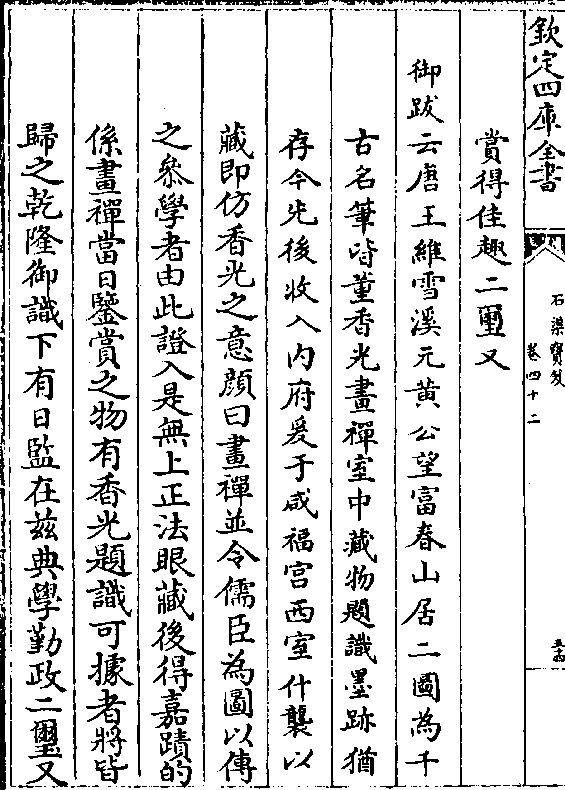 欽定四庫全書
石渠寳笈
卷四十二
五十四
賞得佳趣二璽又
御跋云唐王維雪溪元黄公望富春山居二圖為千
古名筆皆董香光畫禪室中藏物題識墨跡猶
存今先後收入内府爰于咸福宫西室什襲以
藏即仿香光之意顔曰畫禪並令儒臣為圖以傳
之叅學者由此證入是無上正法眼藏後得嘉蹟的
係畫禪當日鑒賞之物有香光題識可據者將皆
歸之乾隆御識下有日監在兹典學勤政二璽又